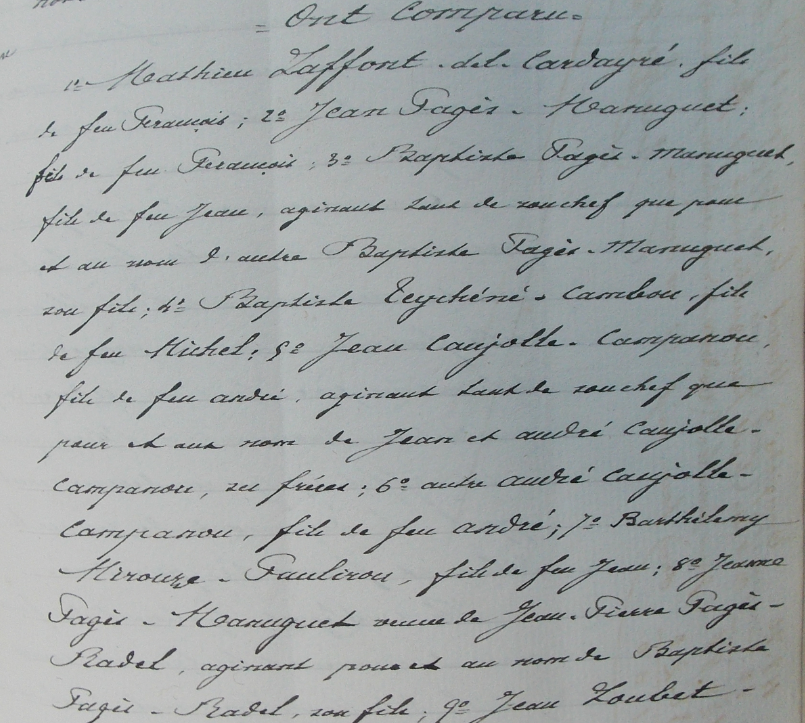 = Ont Comparu =
1º Mathieu Laffont-del-Cardayré, fils
de feu François; 2º Jean Pagès-Manuguet;
fils de feu François; 3º Baptiste Pagès-Manuguet,
fils de feu Jean, agissant tant de son chef que pour
et au nom d'autre Baptiste Pagès-Manuguet,
son fils; 4º Baptiste Teychéné-Cambou, fils
de feu Michel; 5º Jean Caujolle-Campanou,
fils de feu andré, agissant tant de son chef que
pour et aux nom de Jean et andré Caujolle-
Campanou, ses frères; 6º autre andré Caujolle-
Campanou, fils de feu andré; 7º Barthélemy
Mirouze-Paulirou, fils de feu Jean; 8º Jeanne
Pagès-Manuguet veuve de Jean-Pierre Pagès-
Radel, agissant pour et au nom de Baptiste
Pagès-Radel, son fils; 9º Jean Loubet-